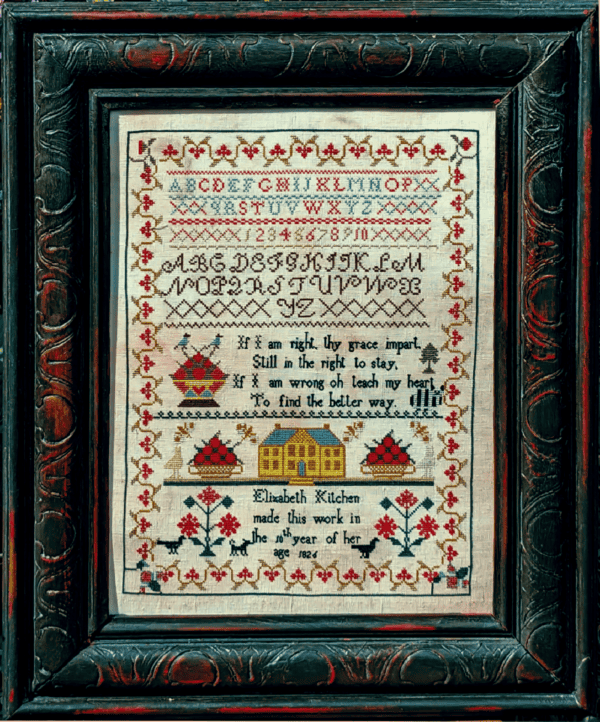 ABCDEFGHIJKLMNOPXX
XXXQRSTUVWXYZXXXX
XXXXXX12345678910XXXXX
ABCDEFGHIJKLM
NOPQRSTUVWX
XXXXXXYZXXXXXXXX
If I am right, thy grace impart,
Still in the right to stay,
If I am wrong oh teach my heart
To find the better way.
Elizabeth Kitchen
made this work in
the 10th year of her
age 1826